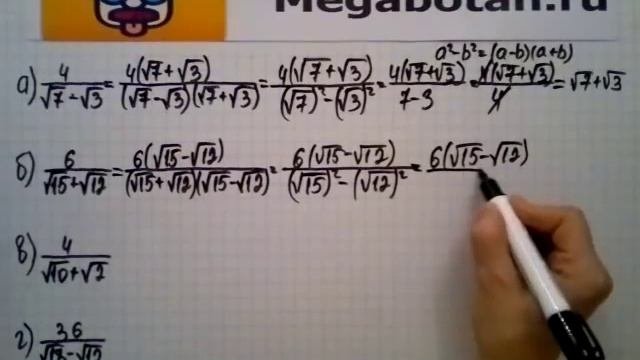 Megabotan.ru
a²-b²=(a-b)(a+b)
а) 4/(√7-√3) = 4(√7+√3)/((√7-√3)(√7+√3)) = 4(√7+√3)/((√7)²-(√3)²) = 4(√7+√3)/(7-3) = 4(√7+√3)/4 = √7+√3
б) 6/(√15+√12) = 6(√15-√12)/((√15+√12)(√15-√12)) = 6(√15-√12)/((√15)²-(√12)²) = 6(√15-√12)
в) 4/(√10+√2)
г) 36